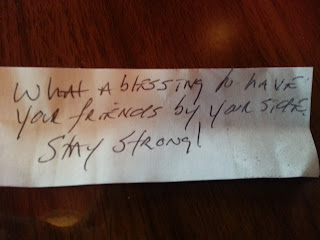 What a blessing to have
your friends by your side.
Stay strong!